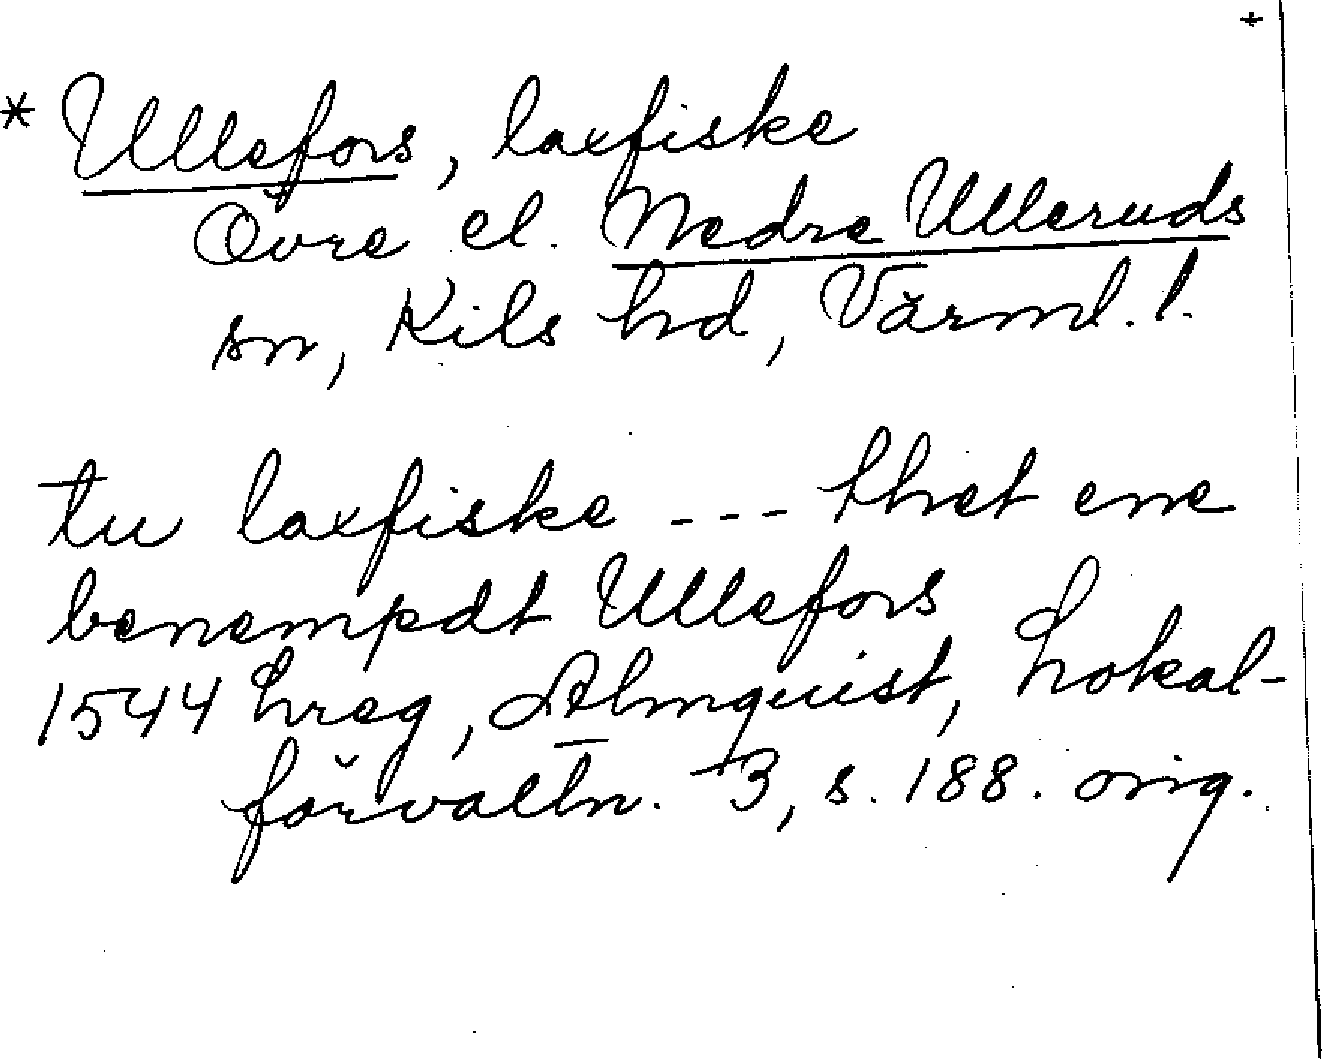 +
* Ullefors, laxfiske
Övre el. Nedre Ulleruds
sn, Kils hd, Värml. l.
tu laxfiske --- thet ene
benempdt Ullefors
1544 hreg, Almquist, Lokal-
förvaltn. 3, s. 188. orig.